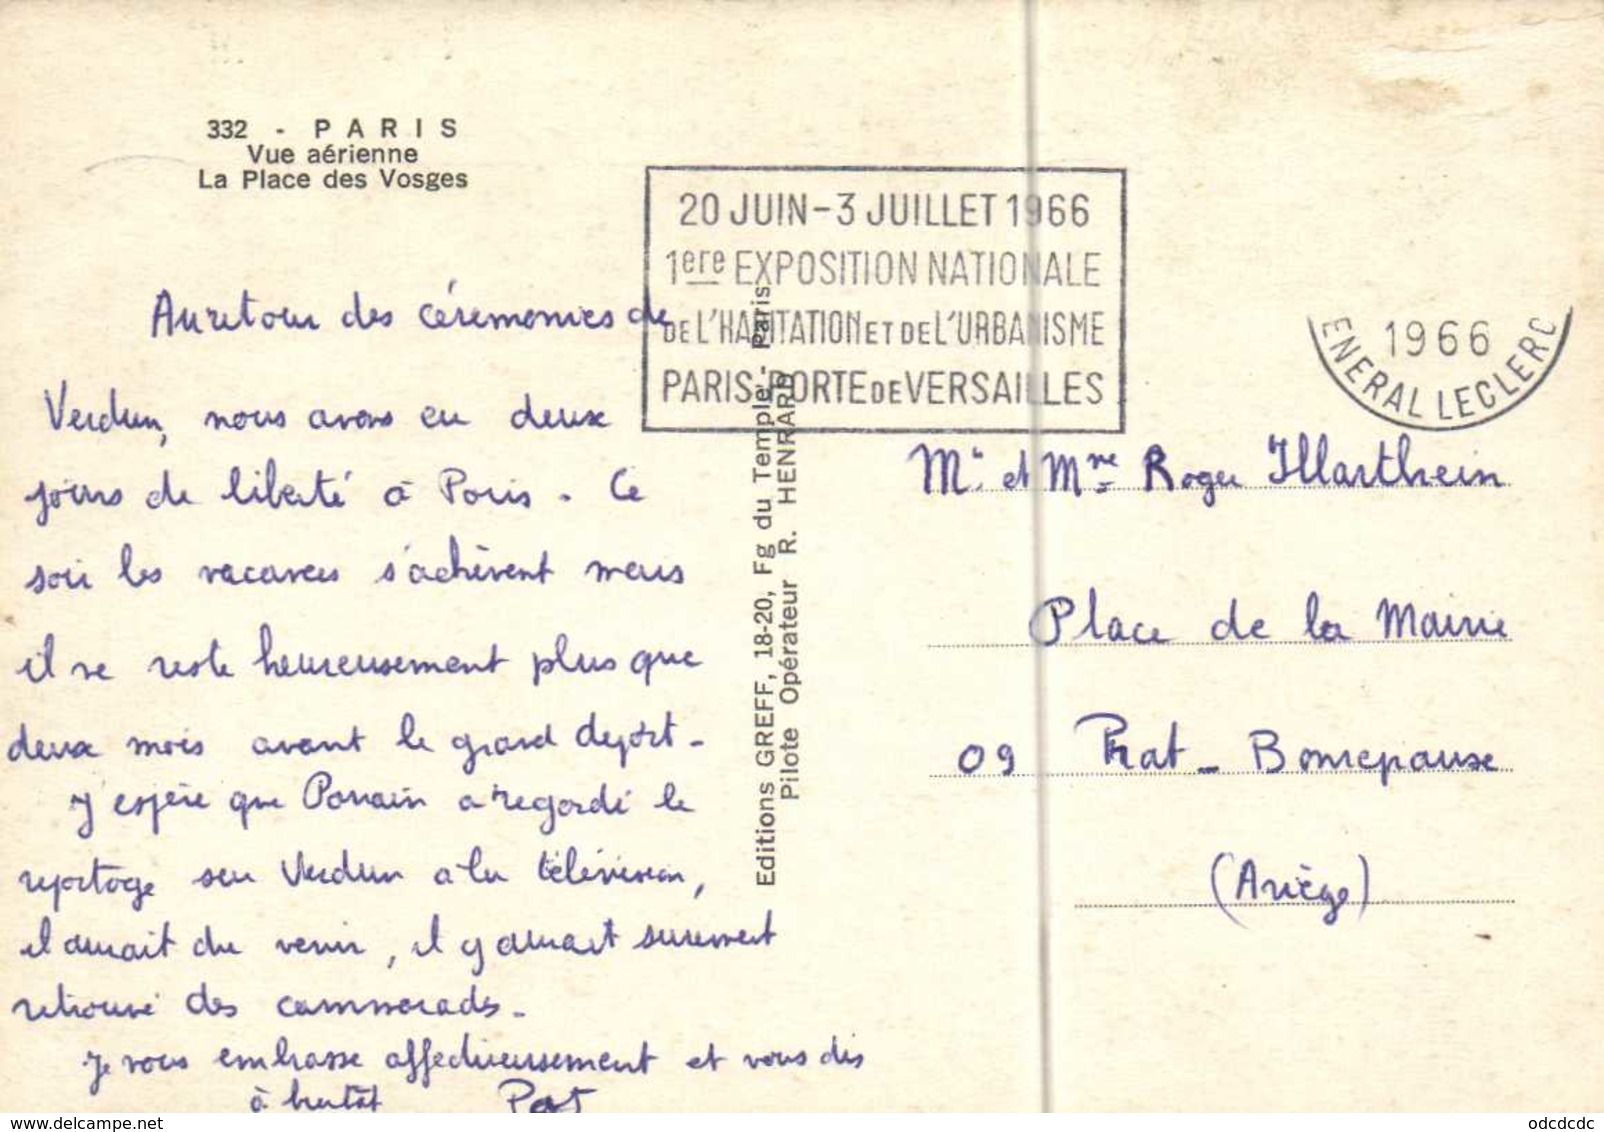 332 - PARIS
Vue aérienne
La Place des Vosges
20 JUIN - 3 JUILLET 1966
1ere EXPOSITION NATIONALE
DE L'HABITATION ET DE L'URBANISME
PARIS-PORTE DE VERSAILLES
1966
ENERAL LECLERC
Au retour des cérémonies de
Verdun, nous avons eu deux
jours de liberté à Paris. Ce
soir les vacances s'achèvent mais
il ne reste heureusement plus que
deux mois avant le grand départ.
J'espère que Parrain a regardé le
reportage sur Verdun a la télévision,
il aurait du venir, il y aurait surement
retrouvé des cammarades.
Je vous embrasse affectueusement et vous dis
à bientôt Pat
Editions GREFF, 18-20, Fg du Temple - Paris
Pilote Opérateur R. HENRARD
Mr. et Mme Roger
Place de la Mairie
09 Prat - Bonrepaux
(Ariège)
www.delcampe.net
odcdcdc